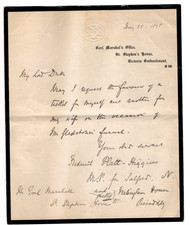 May 23. 1898
Earl Marshal's Office,
St. Stephen's House,
Victoria Embankment,
S.W.
My Lord Duke
May I request the favour of a
ticket for myself and another for
my wife on the occasion of
Mr Gladstone's funeral.
Your obdt servant
Frederick Platt-Higgins
M.P. for Salford, N.
The Earl Marshal
St Stephens House
Piccadilly